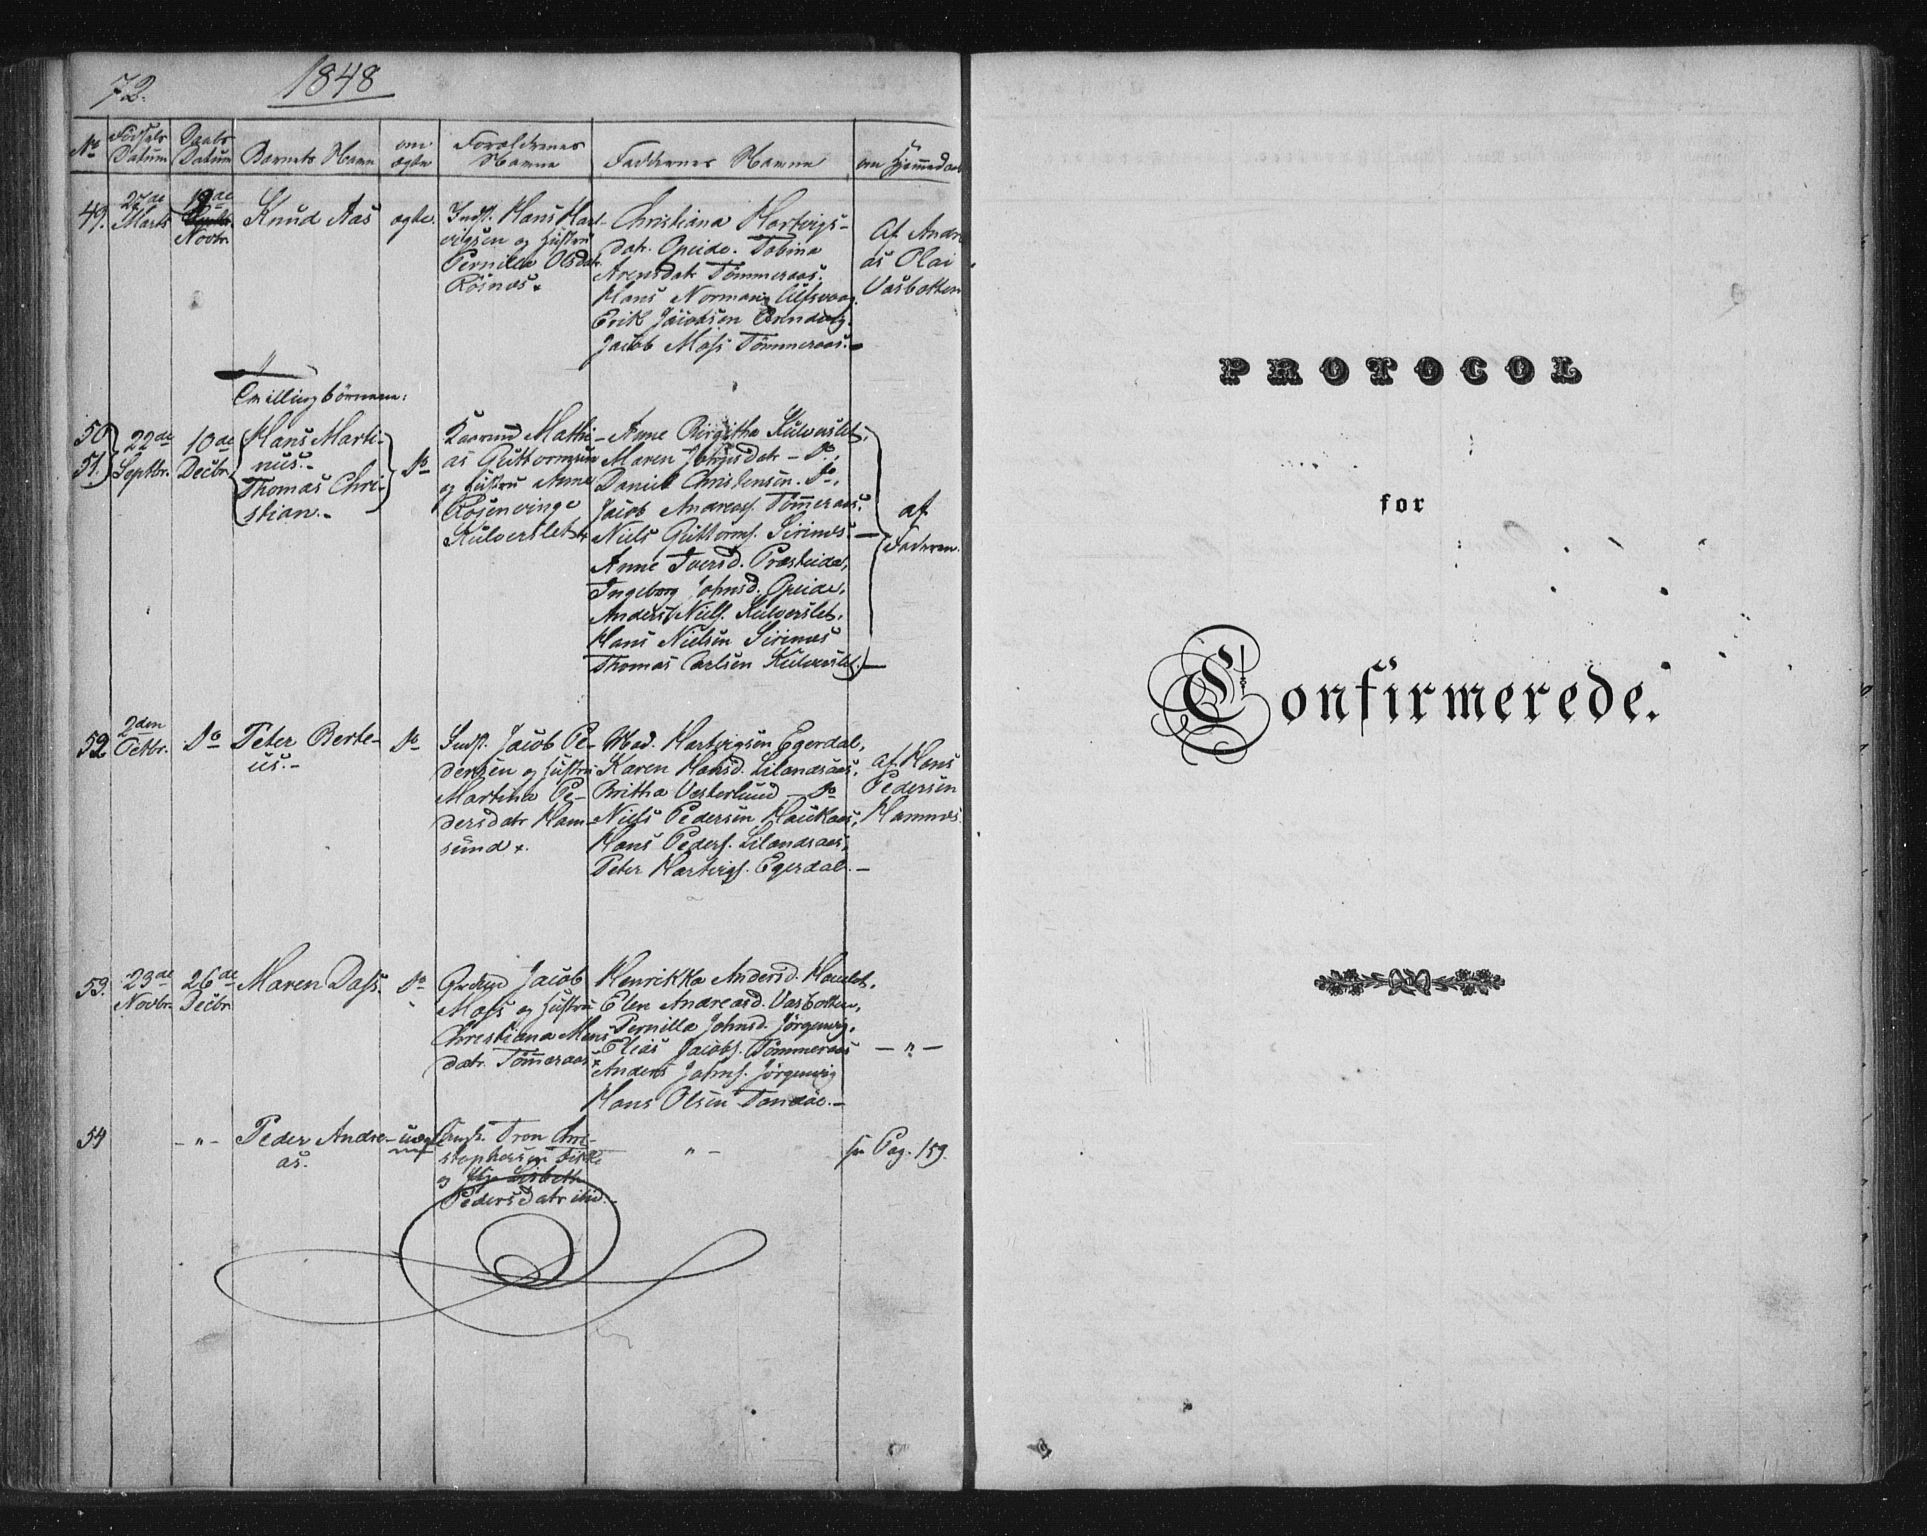 72.
1848
No
Fødsels Datum
Daabs Datum
Barnets Navn
om ægte
Forældrenes Navne
Faddernes Navne
om Hjemmedaab
49.
27de Marts
19de
Novbr.
Knud Aas
ægte.
Indst. Hans Hart-
vigsen og Hustru
Pernilla Olsdatr.
Rösnæs.
Christiana Hartvigs-
datr. Opeide. Tobina
Arensdatr Tömmeraas.
Hans Norman
Erik Jacobsen
Jacob Moss Tömmeraas.
Af Andre
as Olai
Vasbotten
Tvillingbörnene:
50
51.
29de Septbr.
10de Decbr.
Hans Marti-
nus.
Thomas Chri-
stian.
Do
Gaarmd Mathi-
as Guttormsen
og Hustru Anne
Rosenvinge
Kulverslet
Anne Birgitha Kulverslet,
Maren Johnsdatr - Do,
Daniel Christensen. Do,
Jacob Andreass. Tömmeraas.
Niels Guttorms. Sirinæs.
Anne Iversd. Præsteide,
Ingeborg Johnsd. Opeide,
Anders Niels. Kulverslet,
Hans Nielsen Sirinæs
Thomas Carlsen Kulverslet.
af
Faderen.
52
2den Octbr.
Do
Peter Berte-
us.
Do
Indst. Jacob Pe-
dersen og Hustru
Martina Pe-
dersdatr Ham-
sund.
Mad. Hartvigsen Egerdal,
Karen Hansd. Lilandsaas,
Britha Vesterlund - Do
Niels Pedersen Haukaas,
Hans Peders. Lilandsaas,
Peter Hartvigs. Egerdal.
af Hans
Pedersen
Hamnes
53.
23de Novbr.
26de Decbr.
Maren Dass.
Do
Jacob
Moss og Hustru
Christiana Mons
datr. Tömmeraas
Henrikka Andersd.
Elen Andreasd. Vasbotten,
Pernilla Johnsd. Jörgenvig.
Elias Jacobs. Tömmeraas
Anders Johns. Jörgenvig
Hans Olsen
- " -
54
- " -
Peder Andre-
as.
uægte
Tron Chri-
stophersen
og Lisbeth
Pedersdatr ibid.
" -
Pag. 159.
PROTOCOL
for
Confirmerede.